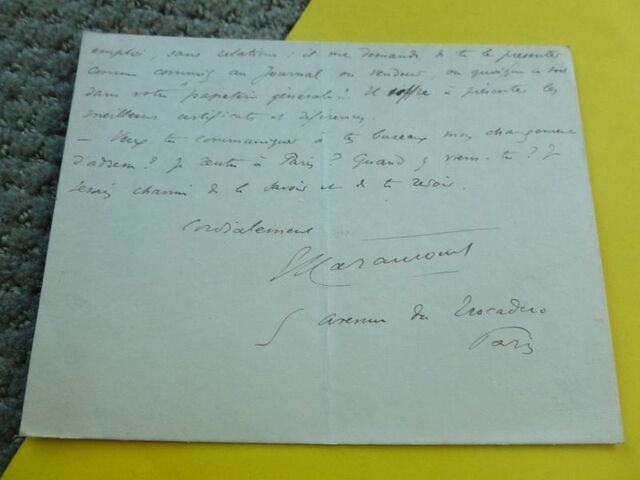 emploi, sans relations: il me demande de te le présenter
comme commis au Journal ou vendeur, ou quoique ce soit
dans votre "papeterie générale". Il offre à présenter les
meilleurs certificats et références.
— Veux tu communiquer à tes bureaux mon changement
d'adresse? Je rentre à Paris? Quand y viens-tu? Je
serais charmé de le savoir et de te revoir.
Cordialement
5 avenue du Trocadéro
Paris